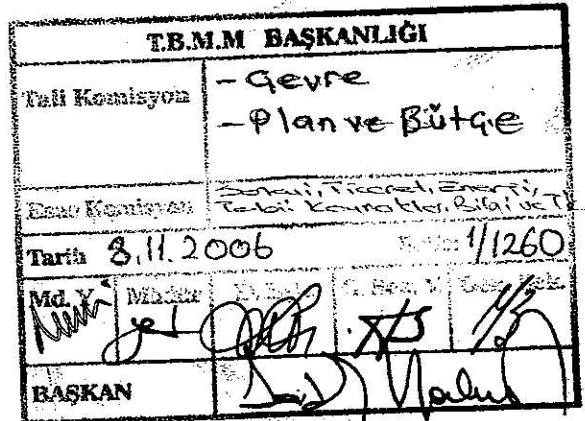 T.B.M.M BAŞKANLIĞI
Tali Komisyon
- Çevre
- Plan ve Bütçe
Esas Komisyon
Sanayi, Ticaret, Enerji,
Tabii Kaynaklar, Bilgi ve
Tarih 8.11.2006 1/1260
Md. Y. Müdür
BAŞKAN